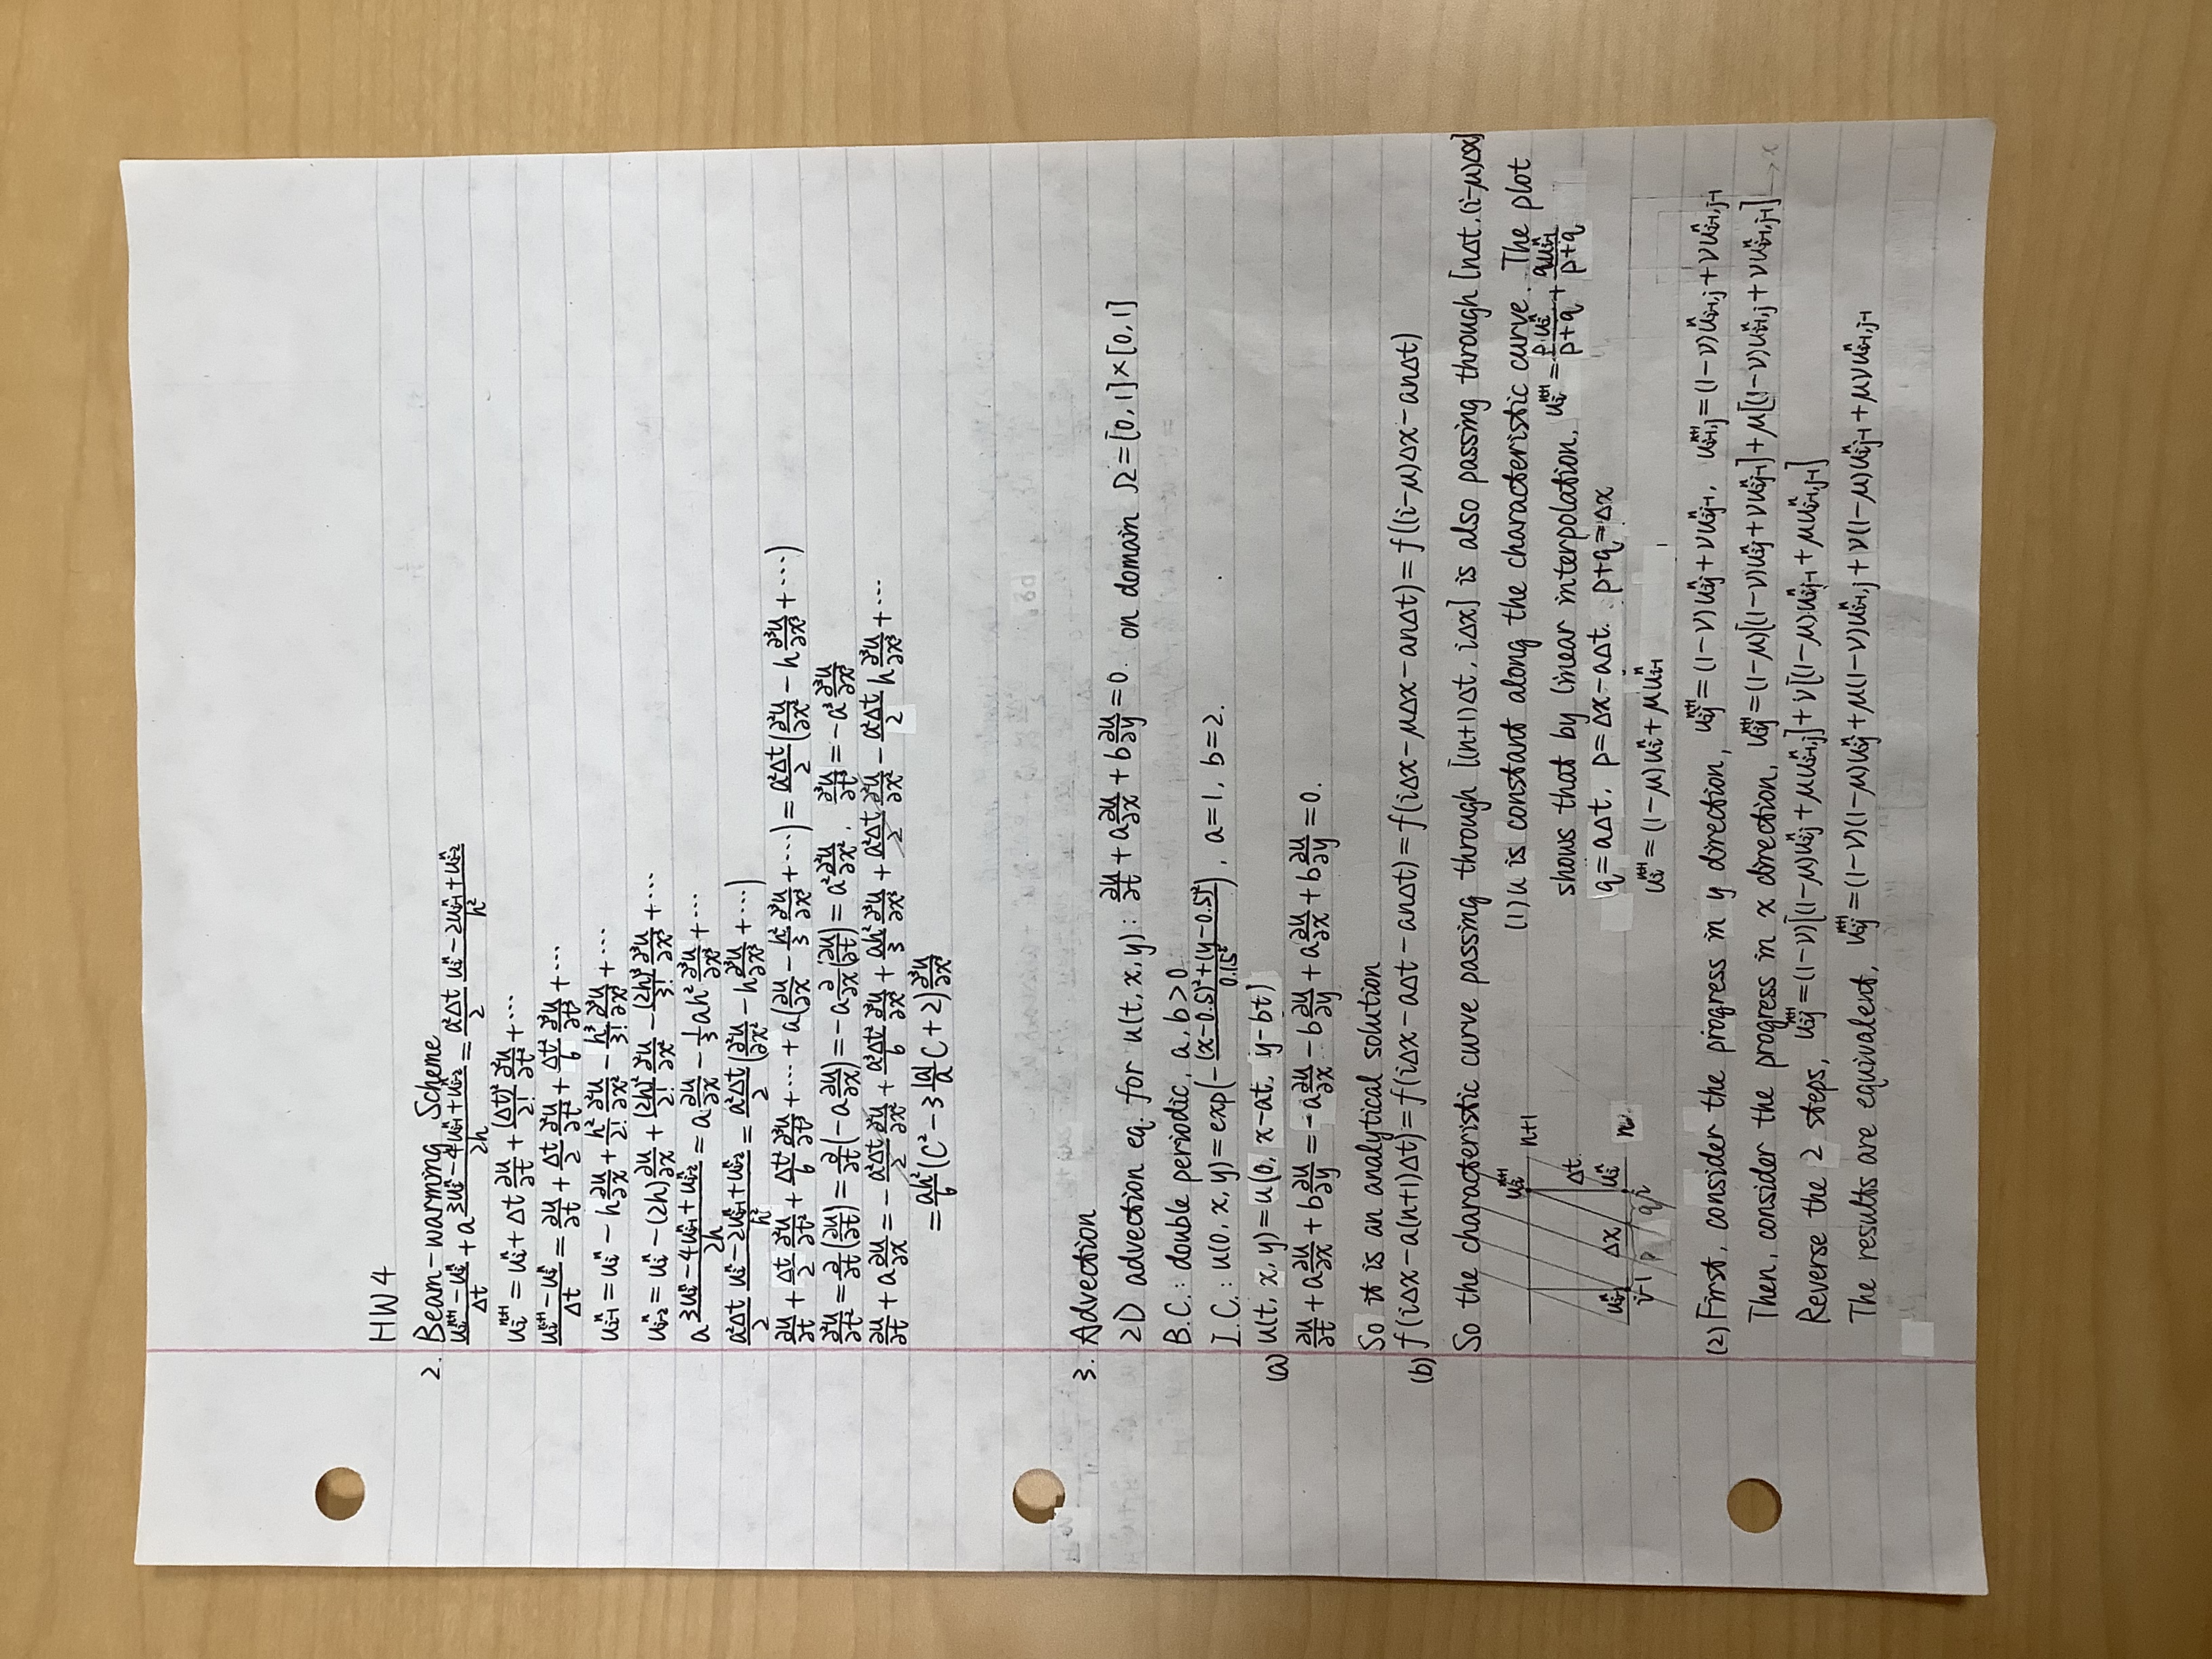 HW4
2. Beam-warming Scheme
$\frac{u_i^{n+1}-u_i^n}{\Delta t}+a\frac{3u_i^n-4u_{i-1}^n+u_{i-2}^n}{2h}=\frac{a^2\Delta t}{2}\frac{u_i^n-2u_{i-1}^n+u_{i-2}^n}{h^2}$
$u_i^{n+1}=u_i^n+\Delta t\frac{\partial u}{\partial t}+\frac{(\Delta t)^2}{2!}\frac{\partial^2 u}{\partial t^2}+\cdots$
$\frac{u_i^{n+1}-u_i^n}{\Delta t}=\frac{\partial u}{\partial t}+\frac{\Delta t}{2}\frac{\partial^2 u}{\partial t^2}+\frac{\Delta t^2}{6}\frac{\partial^3 u}{\partial t^3}+\cdots$
$u_{i-1}^n=u_i^n-h\frac{\partial u}{\partial x}+\frac{h^2}{2!}\frac{\partial^2 u}{\partial x^2}-\frac{h^3}{3!}\frac{\partial^3 u}{\partial x^3}+\cdots$
$u_{i-2}^n=u_i^n-(2h)\frac{\partial u}{\partial x}+\frac{(2h)^2}{2!}\frac{\partial^2 u}{\partial x^2}-\frac{(2h)^3}{3!}\frac{\partial^3 u}{\partial x^3}+\cdots$
$a\frac{3u_i^n-4u_{i-1}^n+u_{i-2}^n}{2h}=a\frac{\partial u}{\partial x}-\frac{1}{3}ah^2\frac{\partial^3 u}{\partial x^3}+\cdots$
$\frac{a^2\Delta t}{2}\frac{u_i^n-2u_{i-1}^n+u_{i-2}^n}{h^2}=\frac{a^2\Delta t}{2}(\frac{\partial^2 u}{\partial x^2}-h\frac{\partial^3 u}{\partial x^3}+\cdots)$
$\frac{\partial u}{\partial t}+\frac{\Delta t}{2}\frac{\partial^2 u}{\partial t^2}+\frac{\Delta t^2}{6}\frac{\partial^3 u}{\partial t^3}+\cdots+a(\frac{\partial u}{\partial x}-\frac{h^2}{3}\frac{\partial^3 u}{\partial x^3}+\cdots)=\frac{a^2\Delta t}{2}(\frac{\partial^2 u}{\partial x^2}-h\frac{\partial^3 u}{\partial x^3}+\cdots)$
$\frac{\partial^2 u}{\partial t^2}=\frac{\partial}{\partial t}(\frac{\partial u}{\partial t})=\frac{\partial}{\partial t}(-a\frac{\partial u}{\partial x})=-a\frac{\partial}{\partial x}(\frac{\partial u}{\partial t})=a^2\frac{\partial^2 u}{\partial x^2}, \frac{\partial^3 u}{\partial t^3}=-a^3\frac{\partial^3 u}{\partial x^3}$
$\frac{\partial u}{\partial t}+a\frac{\partial u}{\partial x}=-\frac{a^2\Delta t}{2}\frac{\partial^2 u}{\partial x^2}+\frac{a^3\Delta t^2}{6}\frac{\partial^3 u}{\partial x^3}+\frac{ah^2}{3}\frac{\partial^3 u}{\partial x^3}+\frac{a^2\Delta t}{2}\frac{\partial^2 u}{\partial x^2}-\frac{a^2\Delta t}{2}h\frac{\partial^3 u}{\partial x^3}+\cdots$
$=\frac{ah^2}{6}(C^2-3\frac{|a|}{a}C+2)\frac{\partial^3 u}{\partial x^3}$
3. Advection
2D advection eq. for u(t, x, y): $\frac{\partial u}{\partial t}+a\frac{\partial u}{\partial x}+b\frac{\partial u}{\partial y}=0.$ on domain $\Omega=[0,1]\times[0,1]$
B.C.: double periodic, a, b>0
I.C.: $u(0, x, y)=\exp(-\frac{(x-0.5)^2+(y-0.5)^2}{0.15^2})$, a=1, b=2.
(a) u(t, x, y)=u(0, x-at, y-bt)
$\frac{\partial u}{\partial t}+a\frac{\partial u}{\partial x}+b\frac{\partial u}{\partial y}=-a\frac{\partial u}{\partial x}-b\frac{\partial u}{\partial y}+a\frac{\partial u}{\partial x}+b\frac{\partial u}{\partial y}=0.$
So it is an analytical solution
(b) f(iΔx-a(n+1)Δt)=f(iΔx-aΔt-anΔt)=f(iΔx-μΔx-anΔt)=f((i-μ)Δx-anΔt)
So the characteristic curve passing through [(n+1)Δt, iΔx] is also passing through [nΔt, (i-μ)Δx]
$u_i^{n+1}$ n+1
Δt
$u_{i-1}^n$ Δx $u_i^n$ n
i-1 p q i
(1) u is constant along the characteristic curve. The plot
shows that by linear interpolation, $u_i^{n+1}=\frac{p\cdot u_i^n}{p+q}+\frac{qu_{i-1}^n}{p+q}$
q=aΔt, p=Δx-aΔt. p+q=Δx
$u_i^{n+1}=(1-μ)u_i^n+μu_{i-1}^n$
(2) First, consider the progress in y direction, $u_{ij}^{n+1}=(1-ν)u_{ij}^n+νu_{ij-1}^n$, $u_{i-1,j}^{n+1}=(1-ν)u_{i-1,j}^n+νu_{i-1,j-1}^n$
Then, consider the progress in x direction, $u_{ij}^{n+1}=(1-μ)[(1-ν)u_{ij}^n+νu_{ij-1}^n]+μ[(1-ν)u_{i-1,j}^n+νu_{i-1,j-1}^n]$
Reverse the 2 steps, $u_{ij}^{n+1}=(1-ν)[(1-μ)u_{ij}^n+μu_{i-1,j}^n]+ν[(1-μ)u_{ij-1}^n+μu_{i-1,j-1}^n]$
The results are equivalent, $u_{ij}^{n+1}=(1-ν)(1-μ)u_{ij}^n+μ(1-ν)u_{i-1,j}^n+ν(1-μ)u_{ij-1}^n+μνu_{i-1,j-1}^n$